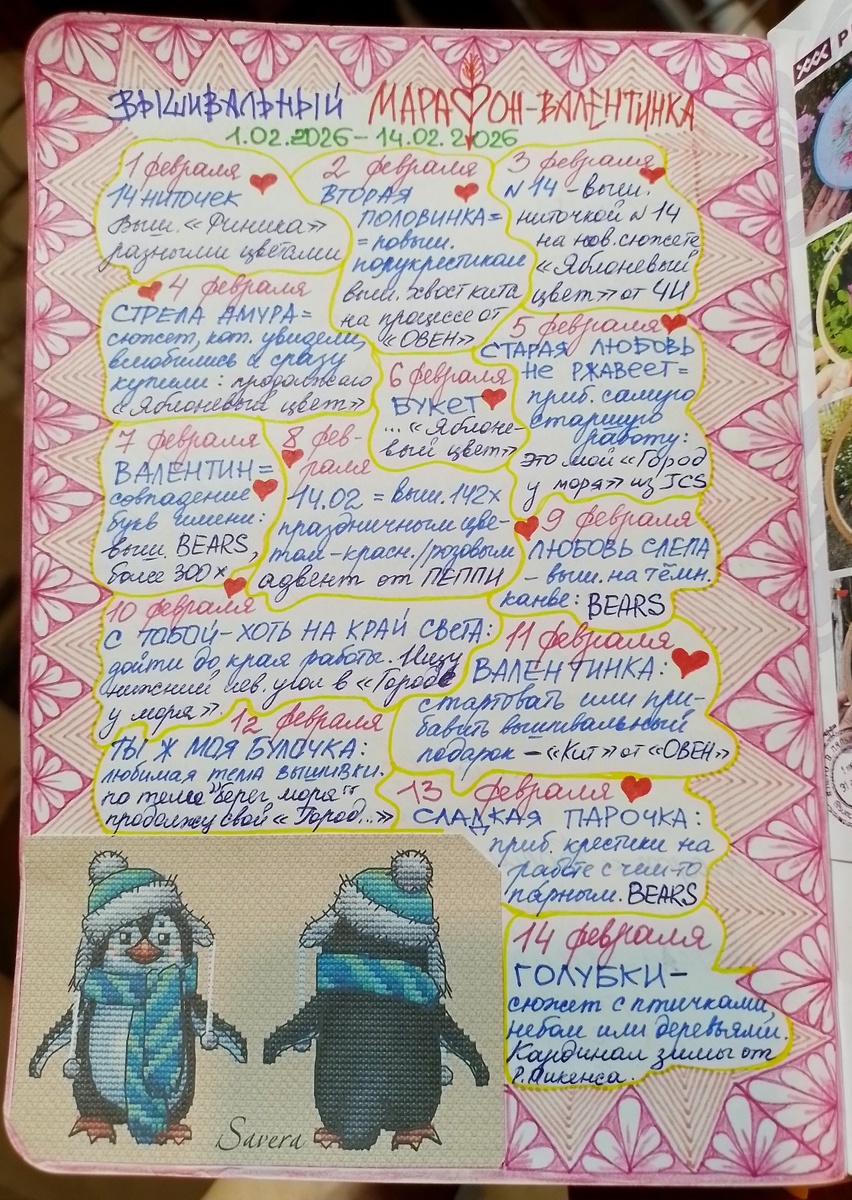 ВЫШИВАЛЬНЫЙ МАРАФОН-ВАЛЕНТИНКА
1.02.2026 – 14.02.2026
1 февраля
14 НИТОЧЕК
выш. «Финика»
разными цветами
2 февраля
ВТОРАЯ
ПОЛОВИНКА =
= повыш.
полукрестиком
выш. хвост кита
на процессе от
«ОВЕН»
3 февраля
N 14 – выш.
ниточкой N 14
на нов. сюжете
«Яблоневый
цвет» от ЧИ
4 февраля
СТРЕЛА АМУРА =
сюжет, кот. увидели,
влюбились и сразу
купили: продолжаю
«Яблоневый цвет»
5 февраля
СТАРАЯ ЛЮБОВЬ
НЕ РЖАВЕЕТ =
приб. самую
старшую
работу:
это мой «Город
у моря» из JCS
6 февраля
БУКЕТ
... «Яблоне-
вый цвет»
7 февраля
ВАЛЕНТИН =
совпадение
букв имени:
выш. BEARS,
более 300 х
8 фев-
раля
14.02 = выш. 142х
праздничным цве-
том – красн./розовым
адвент от ПЕППИ
9 февраля
ЛЮБОВЬ СЛЕПА
– выш. на тёмн.
канве: BEARS
10 февраля
С ТОБОЙ – ХОТЬ НА КРАЙ СВЕТА:
дойти до края работы. Ищу
нижний лев. угол в «Городе
у моря».
11 февраля
ВАЛЕНТИНКА:
стартовать или при-
бавить вышивальный
подарок – «Кит» от «ОВЕН»
12 февраля
ТЫ Ж МОЯ БУЛОЧКА:
любимая тема вышивки.
по теме "берег моря"
продолжу свой «Город...»
13 февраля
СЛАДКАЯ ПАРОЧКА:
приб. крестики на
работе с чем-то
парным. BEARS
14 февраля
ГОЛУБКИ –
сюжет с птичками,
небом или деревьями.
Кардинал зимы от
Р. Пикенса.
Savera